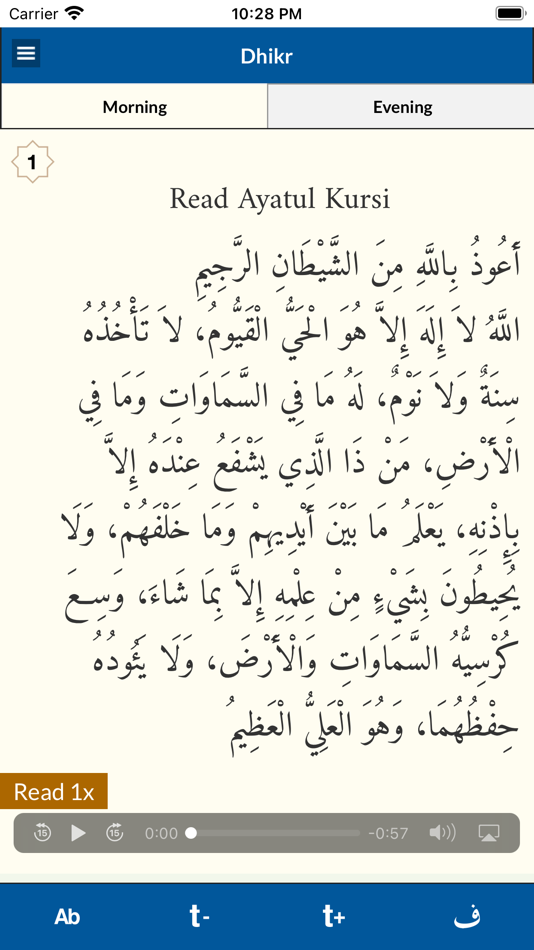 Carrier 10:28 PM
Dhikr
Morning Evening
1
Read Ayatul Kursi
أَعُوذُ بِاللَّهِ مِنَ الشَّيْطَانِ الرَّجِيمِ
اللَّهُ لاَ إِلَهَ إِلاَّ هُوَ الْحَيُّ الْقَيُّومُ، لاَ تَأْخُذُهُ
سِنَةٌ وَلاَ نَوْمٌ، لَهُ مَا فِي السَّمَاوَاتِ وَمَا فِي
الْأَرْضِ، مَنْ ذَا الَّذِي يَشْفَعُ عِنْدَهُ إِلاَّ
بِإِذْنِهِ، يَعْلَمُ مَا بَيْنَ أَيْدِيهِمْ وَمَا خَلْفَهُمْ، وَلَا
يُحِيطُونَ بِشَيْءٍ مِنْ عِلْمِهِ إِلاَّ بِمَا شَاءَ، وَسِعَ
كُرْسِيُّهُ السَّمَاوَاتِ وَالْأَرْضَ، وَلَا يَئُودُهُ
حِفْظُهُمَا، وَهُوَ الْعَلِيُّ الْعَظِيمُ
Read 1x
15 15 0:00 -0:57
Ab t- t+ ف